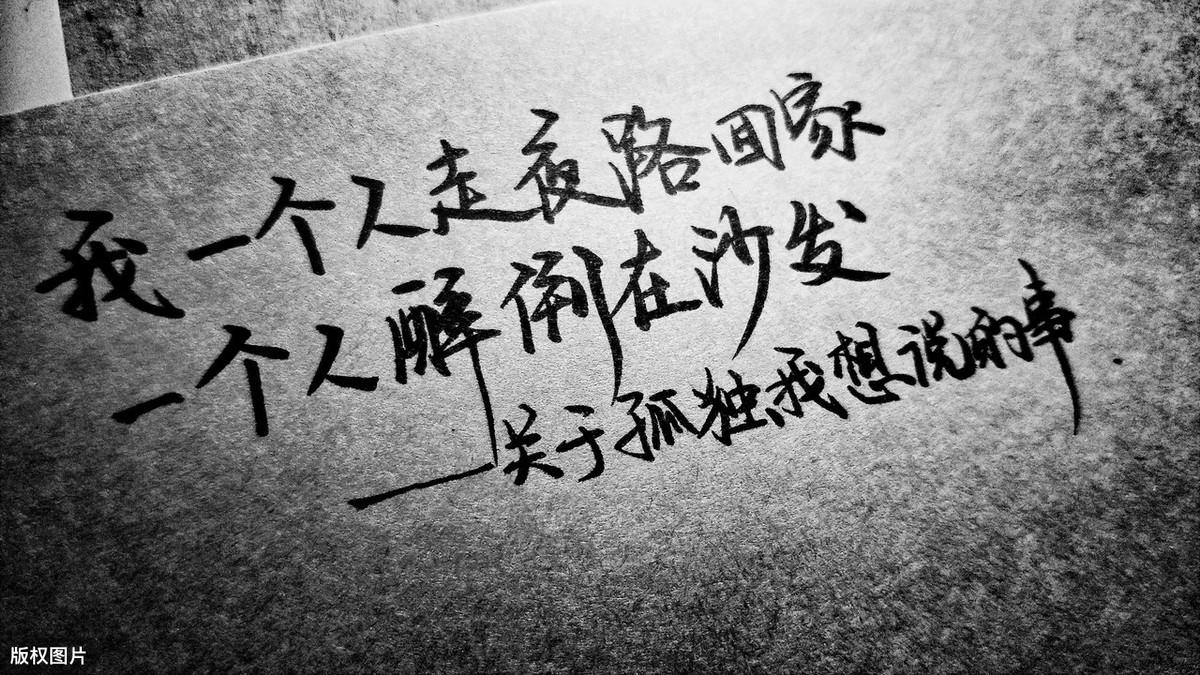 我一个人走夜路回家
一个人醉倒在沙发
——关于孤独,我想说的事.
版权图片